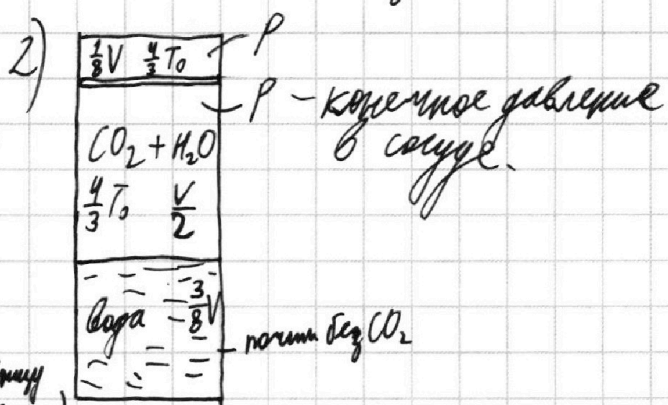 2)
1/8 V 4/3 T₀ P
P - конечное давление
в сосуде.
CO₂ + H₂O
4/3 T₀ V/2
вода 3/8 V
почти без CO₂